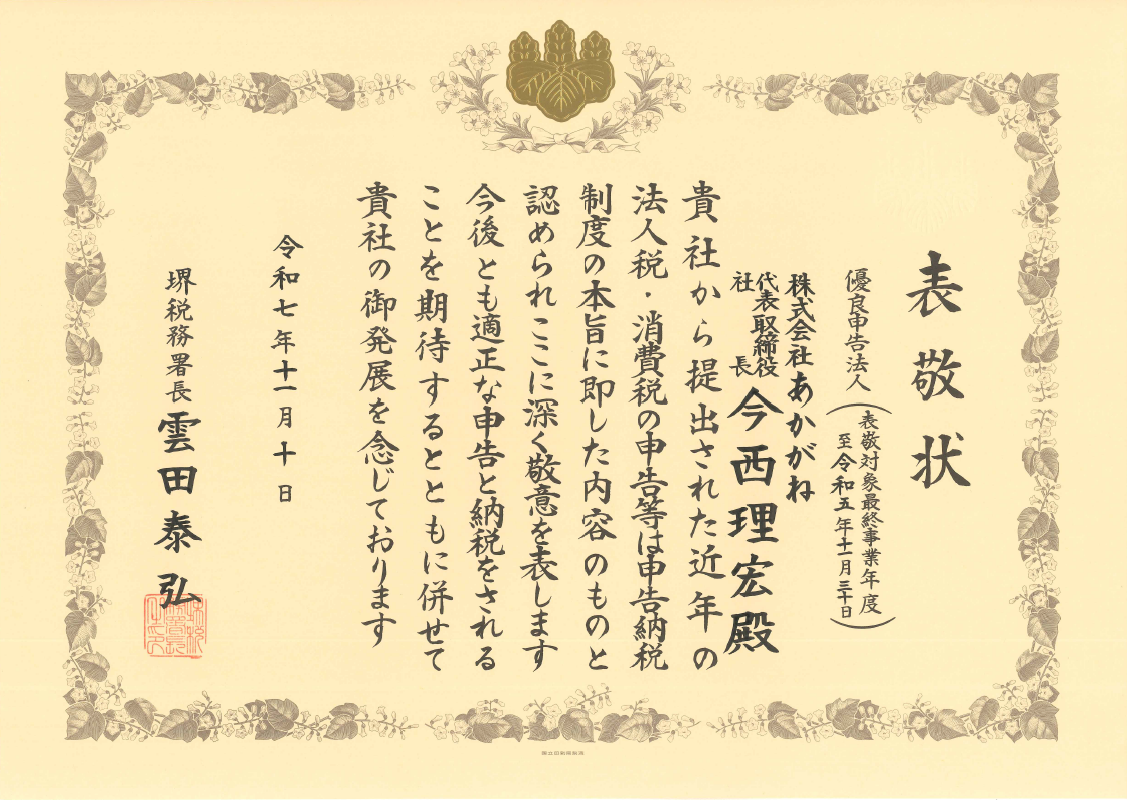 表敬状
優良申告法人
(表敬対象最終事業年度
至令和五年十一月三十日)
株式会社あかがね
代表取締役
社長
今西理宏殿
貴社から提出された近年の
法人税・消費税の申告等は申告納税
制度の本旨に即した内容のものと
認められここに深く敬意を表します
今後とも適正な申告と納税をされる
ことを期待するとともに併せて
貴社の御発展を念じております
令和七年十一月十日
堺税務署長 雲田泰弘